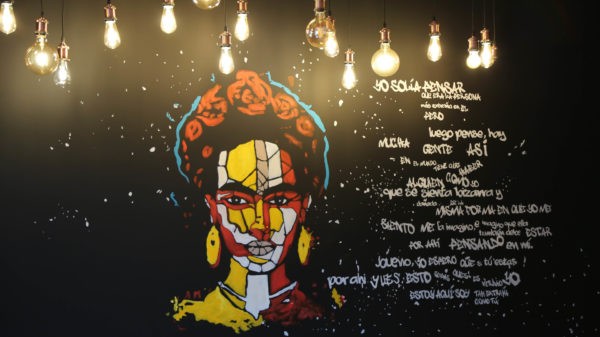 YO SOLÍA PENSAR
QUE ERA LA PERSONA
MÁS EXTRAÑA EN EL
PERO
luego pense, hay
MUCHA GENTE ASÍ
EN EL MUNDO TIENE QUE HABER
ALGUIEN COMO YO
que se sienta bizarra y
dañada DE LA
MISMA FORMA EN QUE YO ME
SIENTO ME la imagino e imagino que ella
también debe ESTAR
POR AHÍ PENSANDO EN MÍ
bueno, YO ESPERO QUE si tú estas
por ahi Y LES ESTO SEPAS QUE SI ES VERDAD YO
ESTOY AQUÍ SOY TAN EXTRAÑA
COMO TÚ